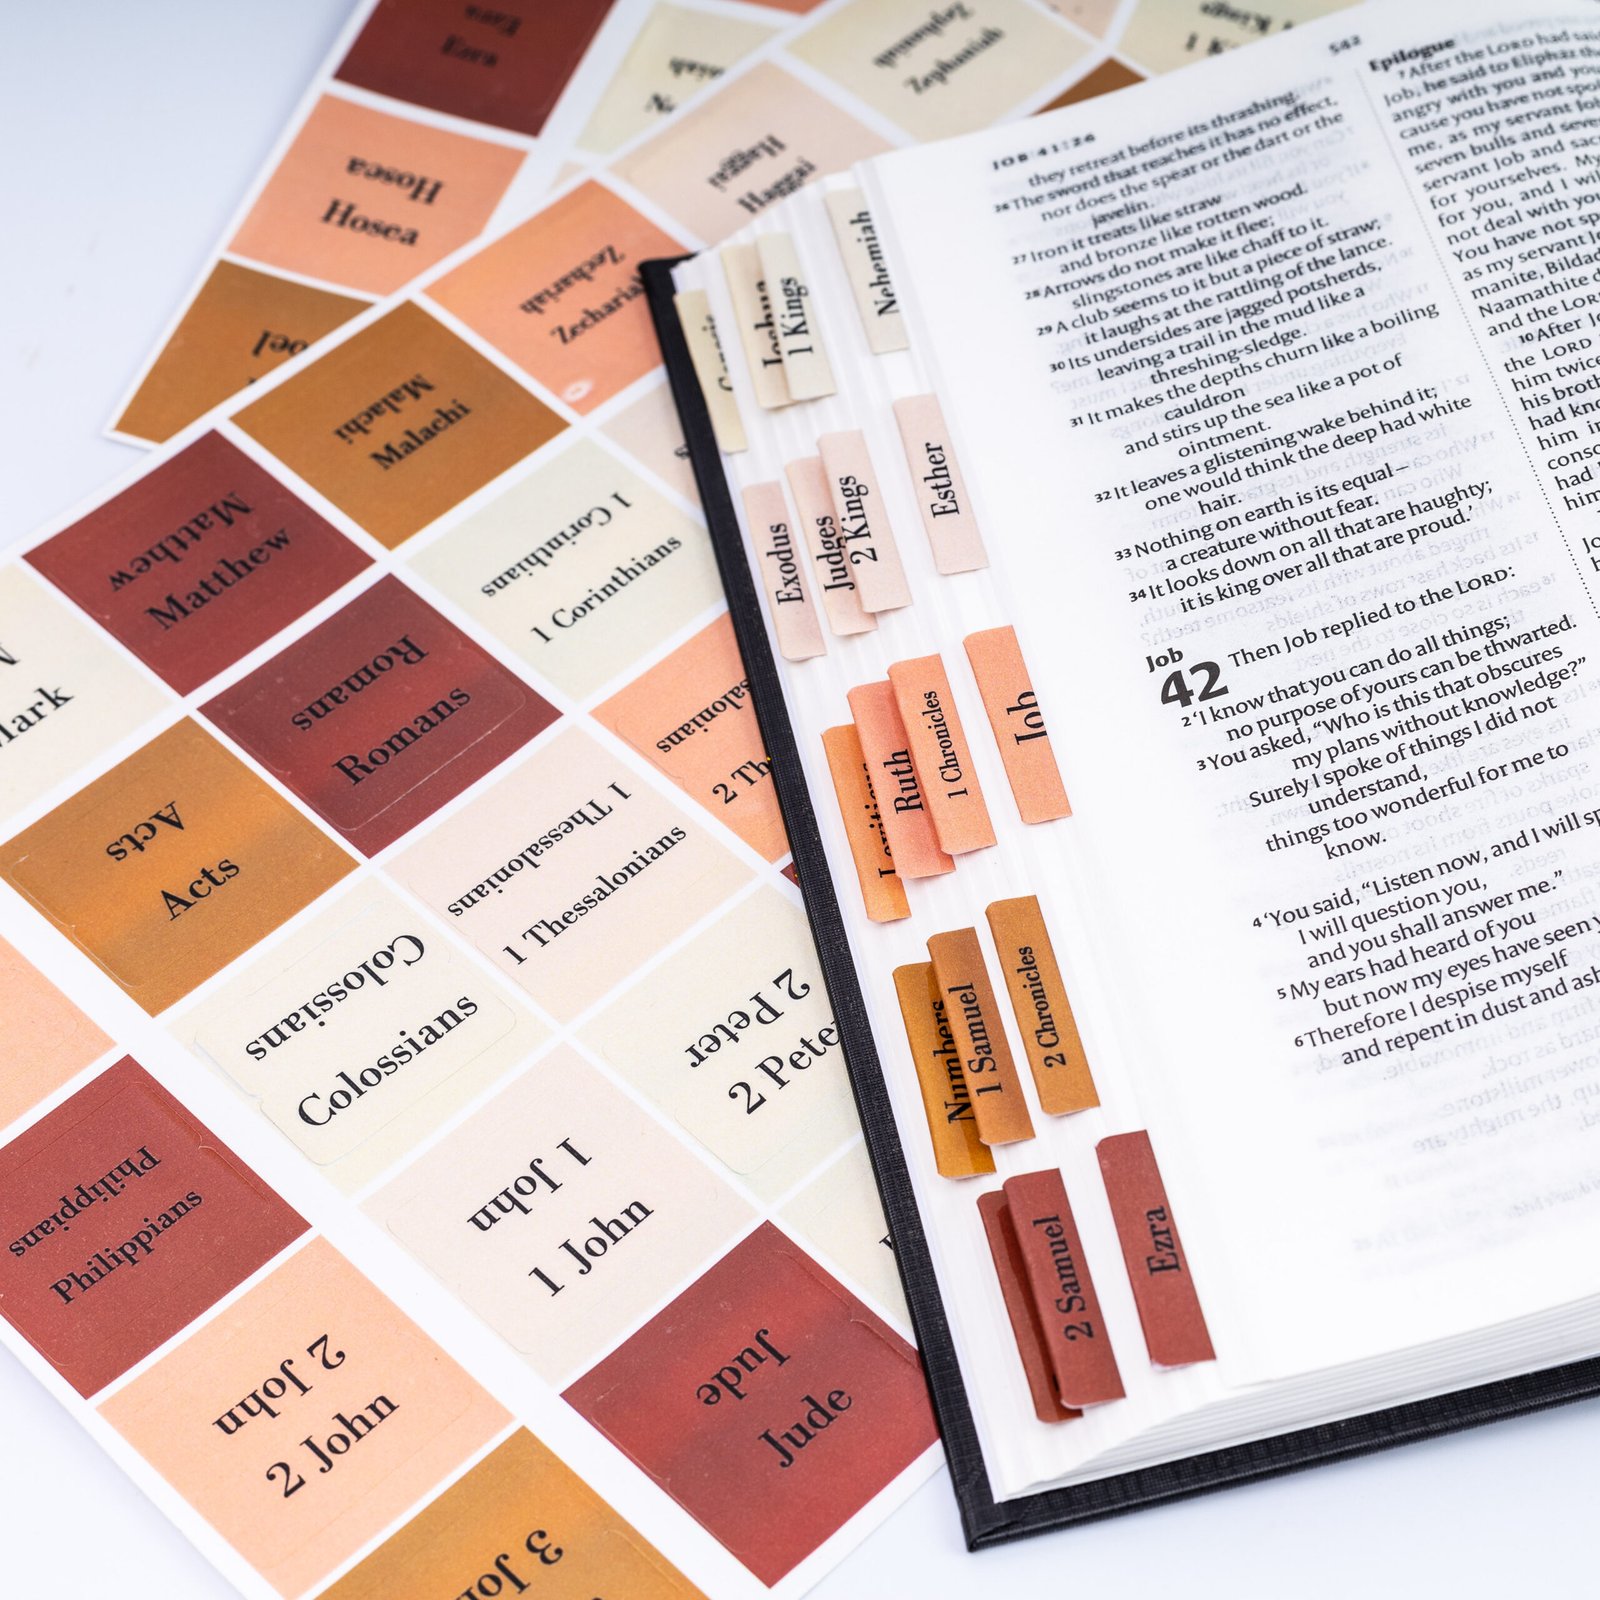 Ezra
Ezra
Hosea
Hosea
Zephaniah
Zephaniah
Haggai
Haggai
Zechariah
Zechariah
Malachi
Malachi
Matthew
Matthew
1 Corinthians
1 Corinthians
Romans
Romans
Acts
Acts
1 Thessalonians
1 Thessalonians
Colossians
Colossians
2 Peter
2 Peter
Philippians
Philippians
1 John
1 John
2 John
2 John
Jude
Jude
Joshua
1 Kings
Nehemiah
Exodus
Judges
2 Kings
Esther
Leviticus
Ruth
1 Chronicles
Job
Numbers
1 Samuel
2 Chronicles
2 Samuel
Ezra
JOB 41:26
542
they retreat before its thrashing.
26 The sword that reaches it has no effect,
nor does the spear or the dart or the
javelin.
27 Iron it treats like straw
and bronze like rotten wood.
28 Arrows do not make it flee;
slingstones are like chaff to it.
29 A club seems to it but a piece of straw;
it laughs at the rattling of the lance.
30 Its undersides are jagged potsherds,
leaving a trail in the mud like a
threshing-sledge.
31 It makes the depths churn like a boiling
cauldron
and stirs up the sea like a pot of
ointment.
32 It leaves a glistening wake behind it;
one would think the deep had white
hair.
33 Nothing on earth is its equal –
a creature without fear.
34 It looks down on all that are haughty;
it is king over all that are proud.’
Job
42 Then Job replied to the LORD:
2 ‘I know that you can do all things;
no purpose of yours can be thwarted.
3 You asked, “Who is this that obscures
my plans without knowledge?”
Surely I spoke of things I did not
understand,
things too wonderful for me to
know.
4 ‘You said, “Listen now, and I will sp
I will question you,
and you shall answer me.”
5 My ears had heard of you
but now my eyes have seen y
6 Therefore I despise myself
and repent in dust and ash
Epilogue
7 After the LORD had said
Job, he said to Eliphaz the
angry with you and you
cause you have not spo
me, as my servant Job
seven bulls and seve
servant Job and sac
for yourselves. My
for you, and I wil
not deal with you
You have not sp
as my servant Je
manite, Bildad
Naamathite d
and the LORD
10 After J
the LORD
him twice
his broth
had kno
him in
conso
had
him